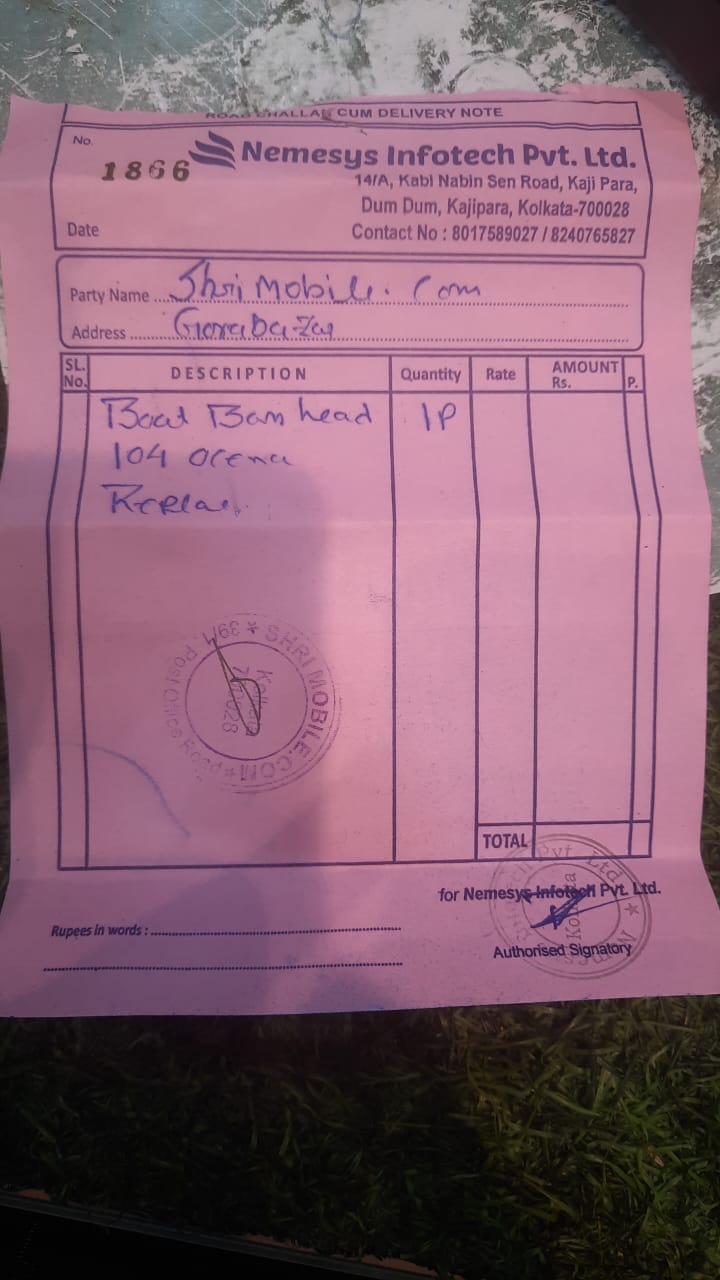 ROAD CHALLAN CUM DELIVERY NOTE
No. 1866
Nemesys Infotech Pvt. Ltd.
14/A, Kabi Nabin Sen Road, Kaji Para,
Dum Dum, Kajipara, Kolkata-700028
Date
Contact No : 8017589027 / 8240765827
Party Name Shri Mobile. Com
Address Gorabazar
SL. No. DESCRIPTION Quantity Rate AMOUNT Rs. P.
Boat Ban head 1P
104
SHRI MOBILE.COM ★ Post Office Road ★
Kolkata
700028
TOTAL
for Nemesys Infotech Pvt. Ltd.
Rupees in words :
Authorised Signatory
Pvt. Ltd. ★
Kolkata